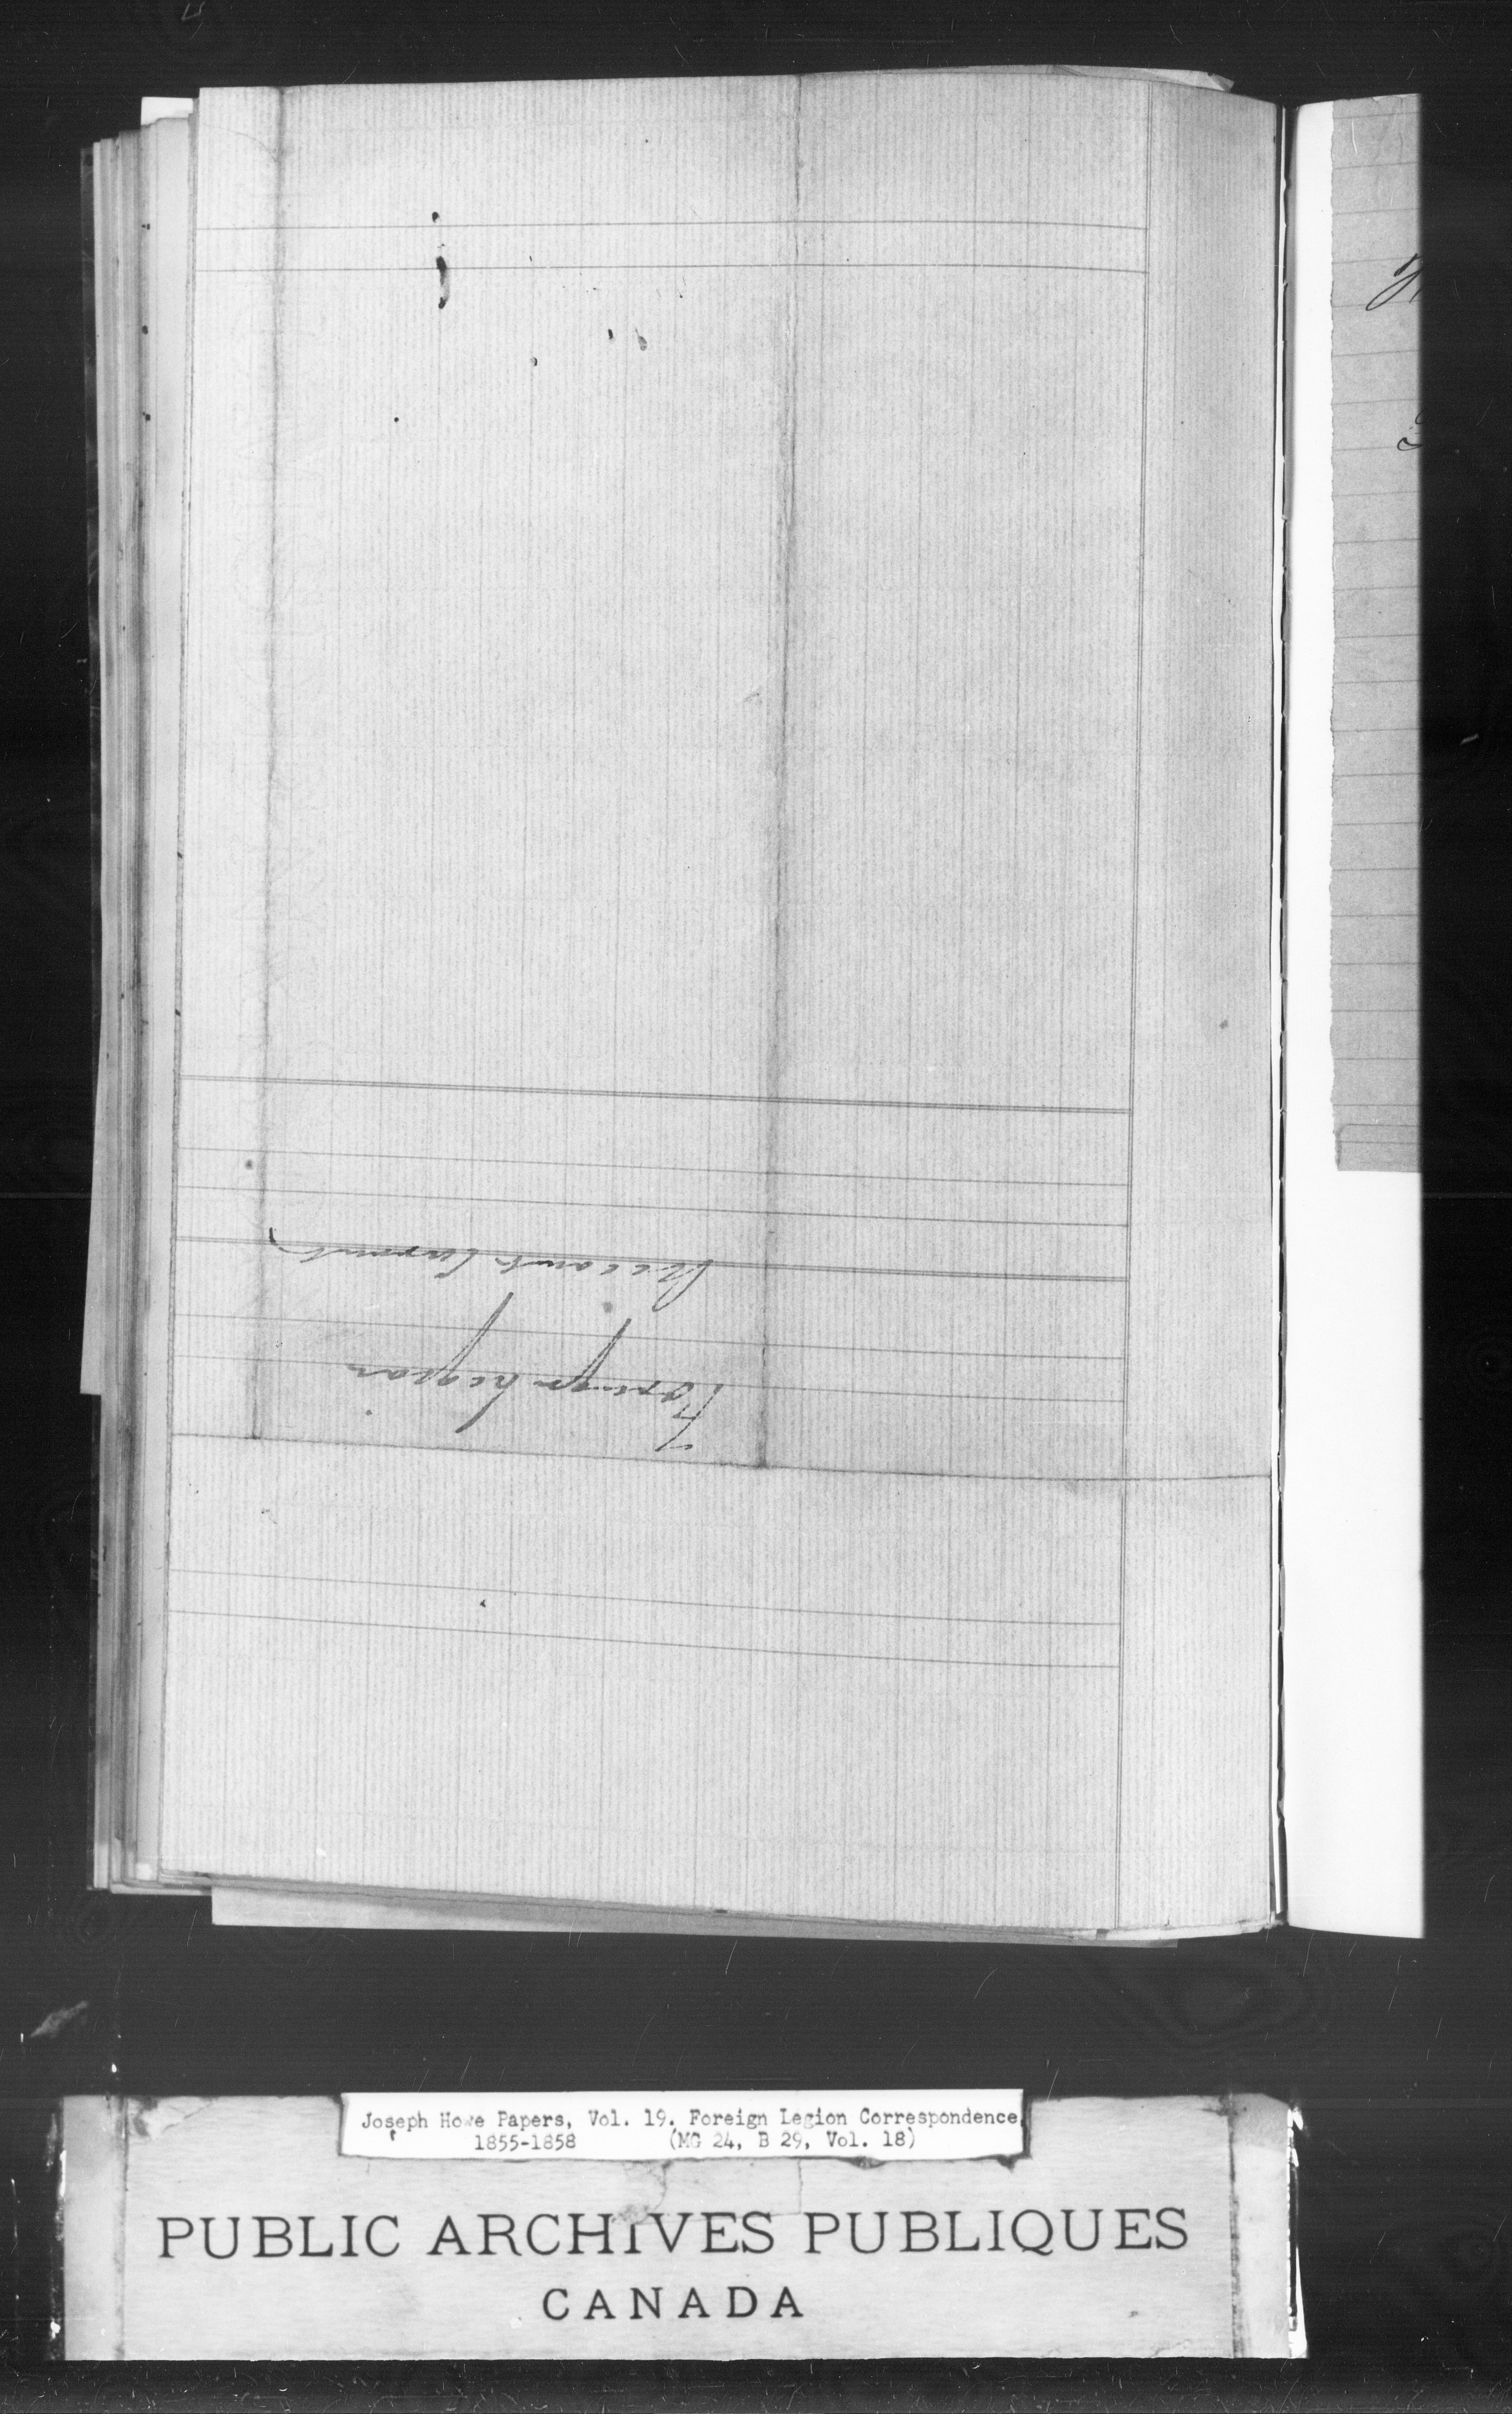 Foreign Legion
Account Current
Joseph Howe Papers, Vol. 19. Foreign Legion Correspondence,
1855-1858 (MG 24, B 29, Vol. 18)
PUBLIC ARCHIVES PUBLIQUES
CANADA